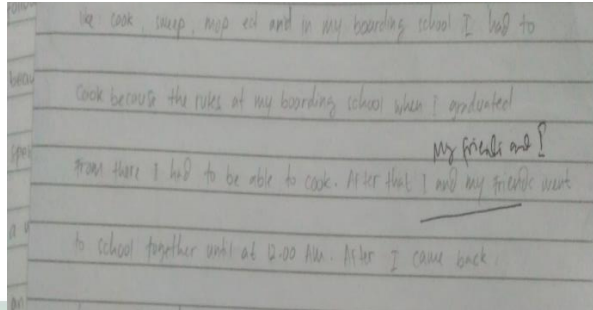 like cook, sweep, mop ect and in my boarding school I had to
cook because the rules at my boarding school when I graduated
My friends and I
From there I had to be able to cook. After that I and my friends went
to school together until at 12.00 AM. After I came back.